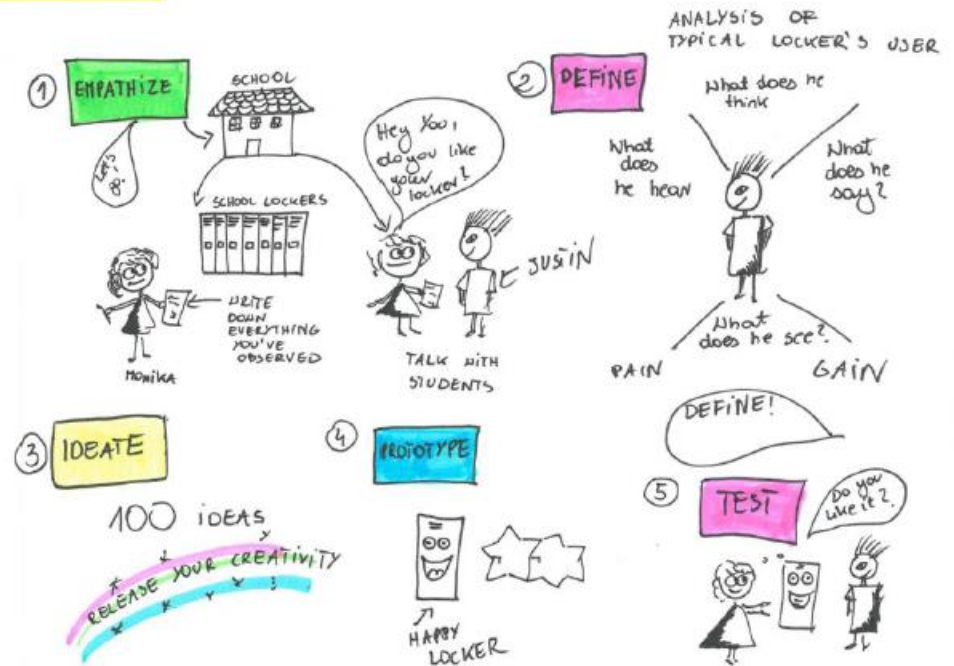 1
EMPATHIZE
Let's
go!
SCHOOL
SCHOOL LOCKERS
Hey You,
do you like
your
locker?
JUSTIN
WRITE
DOWN
EVERYTHING
YOU'VE
OBSERVED
MONIKA
TALK WITH
STUDENTS
2
DEFINE
ANALYSIS OF
TYPICAL LOCKER'S USER
What does he
think
What
does
he hear
What
does he
say?
What
does he see?
PAIN
GAIN
DEFINE!
3
IDEATE
100 IDEAS
RELEASE YOUR CREATIVITY
4
PROTOTYPE
HAPPY
LOCKER
5
TEST
Do you
like it?